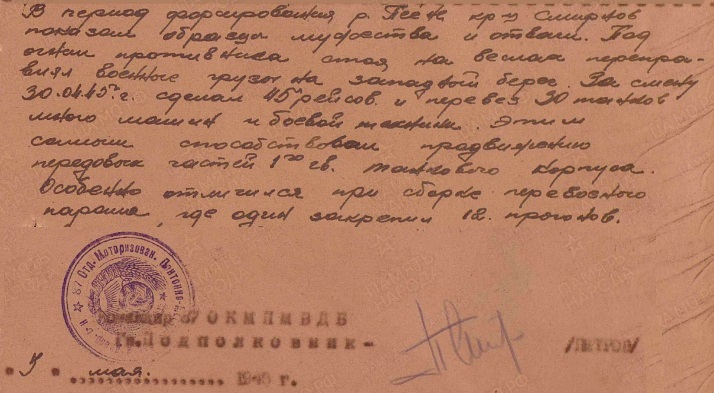 В период форсирования р. Пеене кр-ц Смирнов
показал образцы мужества и отваги. Под
огнем противника стоя на веслах переправ-
лял военные грузы на западный берег. За смену
30.04.45 г. сделал 45 рейсов и перевез 30 танков
много машин и боевой техники. Этим
самым способствовал продвижению
передовых частей 1го гв. танкового корпуса.
Особенно отличился при сборке перевозного
парома, где один закрепил 12 прогонов.
87 Отд. Моторизован. Понтонно-
Командир 87 ОКМПМВДБ
Гв. Подполковник-
/ПЕТРОВ/
" мая. 1945 г.